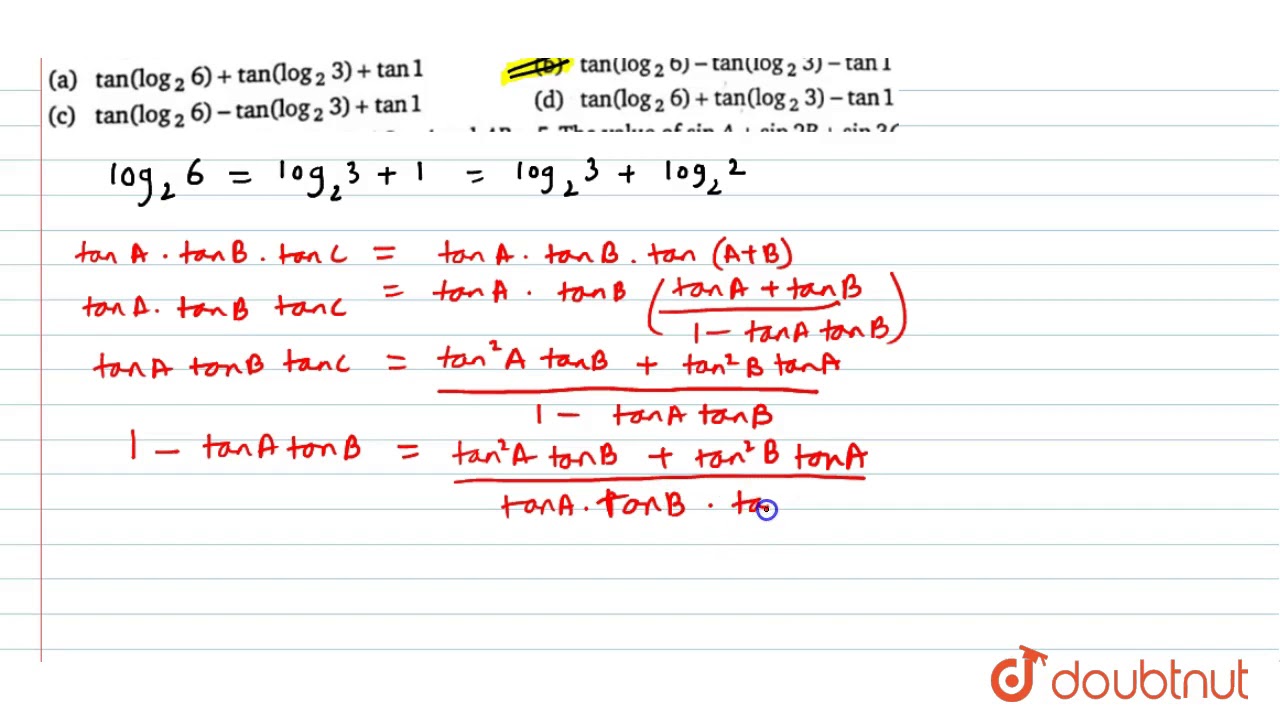 (a) tan(log₂ 6) + tan(log₂ 3) + tan 1 (b) tan(log₂ 6) − tan(log₂ 3) − tan 1
(c) tan(log₂ 6) − tan(log₂ 3) + tan 1 (d) tan(log₂ 6) + tan(log₂ 3) − tan 1
5. The value of sin A + sin 2B + sin 3C
log₂ 6 = log₂ 3 + 1 = log₂ 3 + log₂ 2
tan A . tan B . tan C = tan A . tan B . tan (A+B)
tan A. tan B tan C = tan A . tan B (tan A + tan B / 1 − tan A tan B)
tan A tan B tan C = tan² A tan B + tan² B tan A / 1 − tan A tan B
1 − tan A tan B = tan² A tan B + tan² B tan A / tan A . tan B . ta
doubtnut